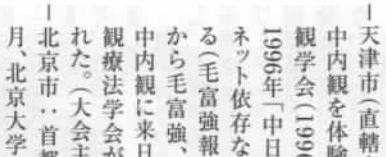 －天津市(直轄
中内観を体験
観学会(1990
1996年「中日
ネット依存な
る(毛富強報
から毛富強、
中内観に来日
観療法学会が
れた。(大会主
－北京市：首都
月、北京大学